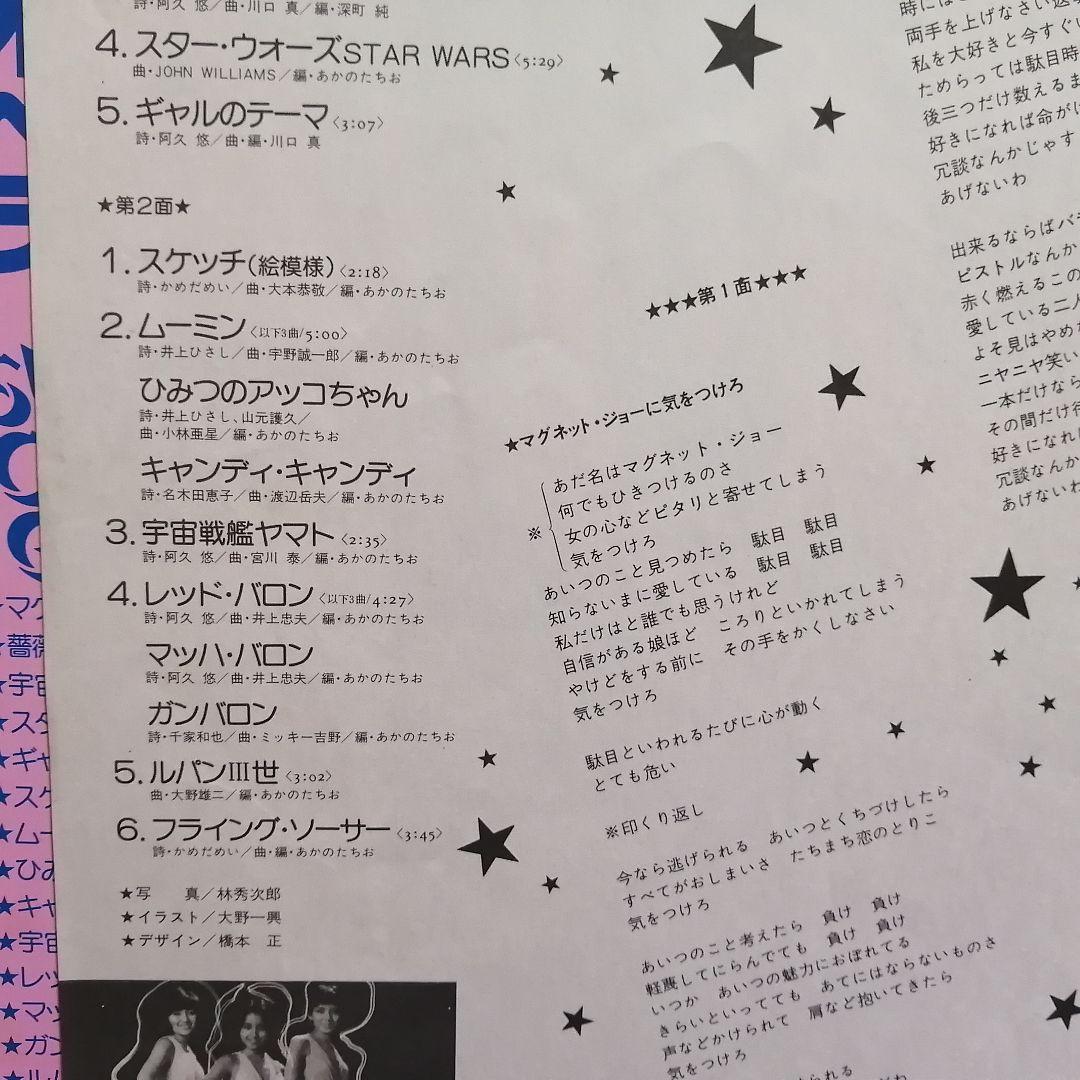 詩・阿久 悠／曲・川口 真／編・深町 純
4. スター・ウォーズSTAR WARS〈5:29〉
曲・JOHN WILLIAMS／編・あかのたちお
5. ギャルのテーマ〈3:07〉
詩・阿久 悠／曲・編・川口 真
★第2面★
1. スケッチ(絵模様)〈2:18〉
詩・かめだめい／曲・大本恭敬／編・あかのたちお
2. ムーミン〈以下3曲/5:00〉
詩・井上ひさし／曲・宇野誠一郎／編・あかのたちお
ひみつのアッコちゃん
詩・井上ひさし、山元護久／
曲・小林亜星／編・あかのたちお
キャンディ・キャンディ
詩・名木田恵子／曲・渡辺岳夫／編・あかのたちお
3. 宇宙戦艦ヤマト〈2:35〉
詩・阿久 悠／曲・宮川 泰／編・あかのたちお
4. レッド・バロン〈以下3曲/4:27〉
詩・阿久 悠／曲・井上忠夫／編・あかのたちお
マッハ・バロン
詩・阿久 悠／曲・井上忠夫／編・あかのたちお
ガンバロン
詩・千家和也／曲・ミッキー吉野／編・あかのたちお
5. ルパンIII世〈3:02〉
曲・大野雄二／編・あかのたちお
6. フライング・ソーサー〈3:45〉
詩・かめだめい／曲・編・あかのたちお
★写　真／林秀次郎
★イラスト／大野一興
★デザイン／橋本　正
★★★第1面★★★
★マグネット・ジョーに気をつけろ
※
あだ名はマグネット・ジョー
何でもひきつけるのさ
女の心などピタリと寄せてしまう
気をつけろ
あいつのこと見つめたら　駄目　駄目
知らないまに愛している　駄目　駄目
私だけはと誰でも思うけれど
自信がある娘ほど　ころりといかれてしまう
やけどをする前に　その手をかくしなさい
気をつけろ
駄目といわれるたびに心が動く
とても危い
※印くり返し
今なら逃げられる　あいつとくちづけしたら
すべてがおしまいさ　たちまち恋のとりこ
気をつけろ
あいつのこと考えたら　負け　負け
軽蔑してにらんでても　負け　負け
いつか　あいつの魅力におぼれてる
きらいといってても　あてにはならないものさ
声などかけられて　肩など抱いてきたら
気をつけろ
られる
時には
両手を上げなさい
私を大好きと今すぐ
ためらっては駄目
後三つだけ数える
好きになれば命が
冗談なんかじゃ
あげないわ
出来るならば
ピストルなんか
赤く燃えるこの
愛している二人
よそ見はやめ
ニヤニヤ笑い
一本だけなら
その間だけ
好きになれ
冗談なんか
あげないわ
★マグ
★薔薇
★宇宙
★スタ
★ギャ
★スケ
★ムー
★ひみ
★キャ
★宇宙
★レッ
★マッ
★ガン
★ルパ